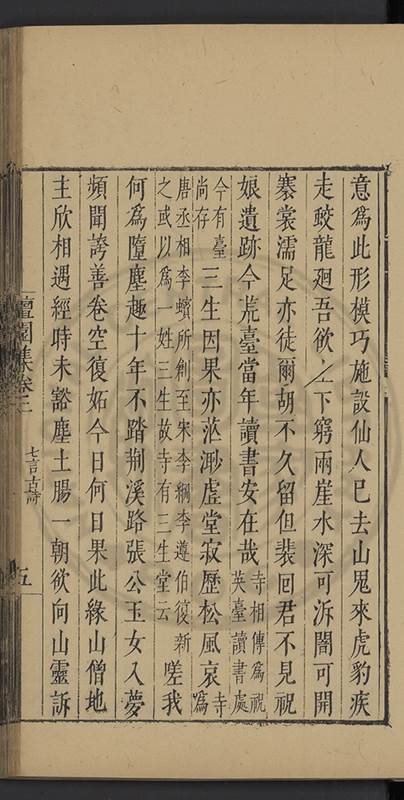 意為此形模巧施設仙人巳去山鬼來虎豹疾
走蛟龍廻吾欲上下窮兩崖水深可泝闇可開
褰裳濡足亦徒爾胡不久留但裴回君不見祝
娘遺跡今荒臺當年讀書安在哉寺相傳為祝英臺讀書處
今有臺尚存三生因果亦茫渺虛堂寂歷松風哀寺為
唐丞相李蠙所創至宋李綱李遵伯復新之或以為一姓三生故寺有三生堂云嗟我
何為墮塵趣十年不踏荆溪路張公玉女入夢
頻聞誇善卷空復妬今日何日果此緣山僧地
主欣相遇經時未豁塵土腸一朝欲向山靈訴
檀園集卷二
七言古詩
五